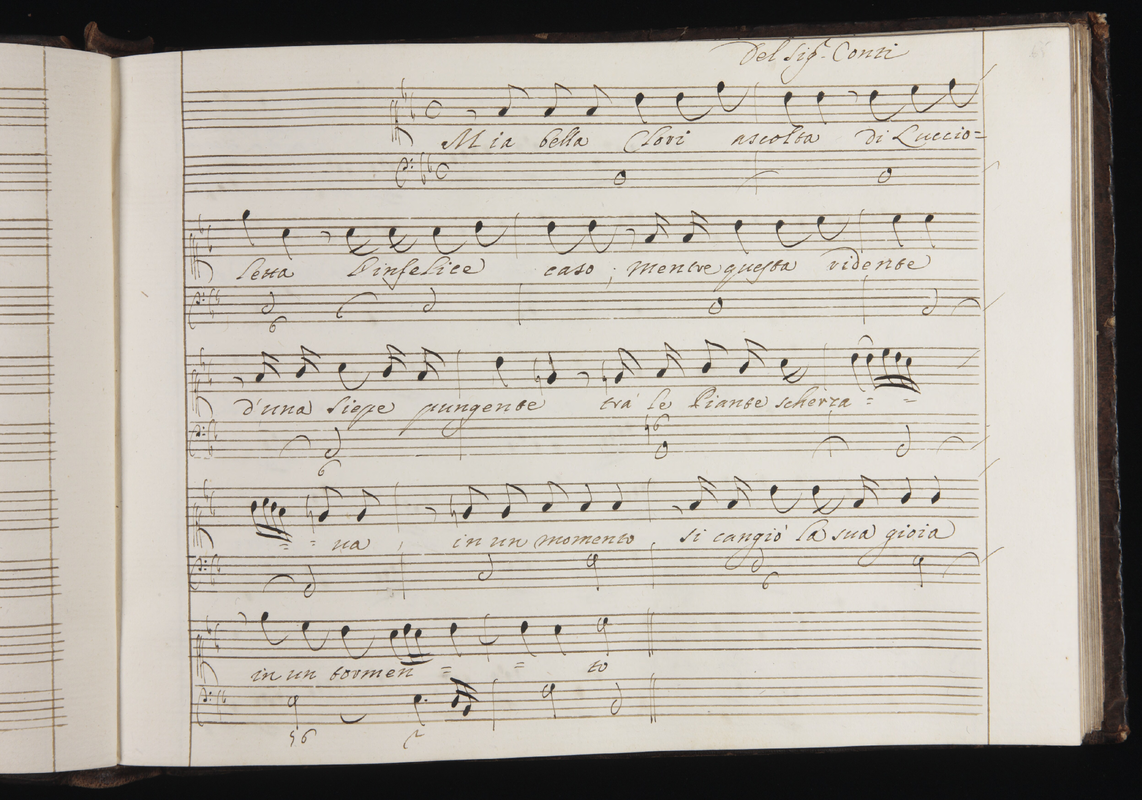 Del Sig.r Conti
65
Mia bella Clori ascolta di Luccio=
letta l'infelice caso; mentre questa ridente
6
d'una siepe pungente trà le Piante scherza = =
6 6
= = ua, in un momento si cangiò la sua gioia
6
in un tormen = = to
6